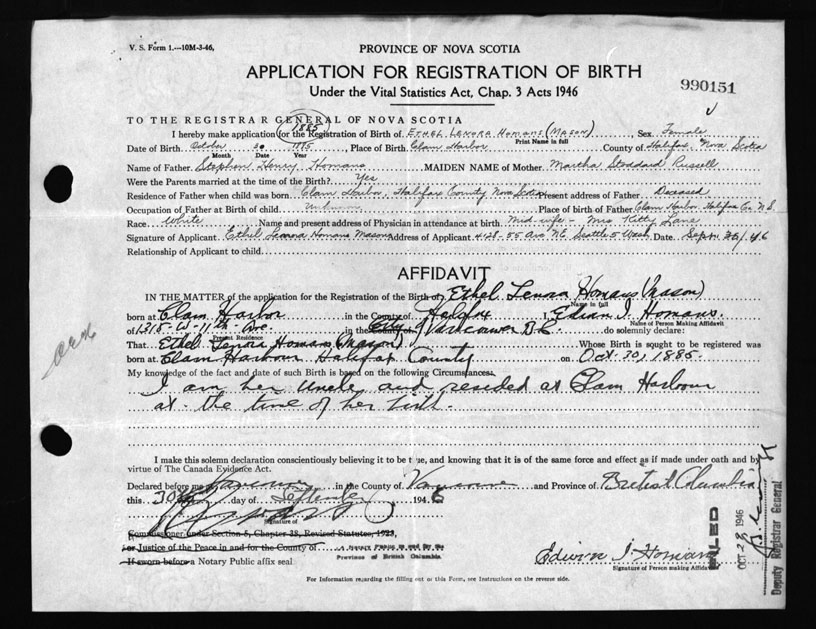 V. S. Form 1.---10M-3-46,
PROVINCE OF NOVA SCOTIA
APPLICATION FOR REGISTRATION OF BIRTH
990151
Under the Vital Statistics Act, Chap. 3 Acts 1946
TO THE REGISTRAR GENERAL OF NOVA SCOTIA
1885
I hereby make application (for the Registration of Birth of Ethel Lenora Homans (Mason) Sex Female
Print Name in full
Date of Birth October 30 1885, Place of Birth Clam Harbor County of Halifax, Nova Scotia
Month Date Year
Name of Father Stephen Henry Homans MAIDEN NAME of Mother Martha Stoddard Russell
Were the Parents married at the time of the Birth? Yes
Residence of Father when child was born Clam Harbor, Halifax County Nova Scotia Present address of Father Deceased
Occupation of Father at Birth of child Unknown Place of birth of Father Clam Harbor Halifax Co. N.S.
Race White Name and present address of Physician in attendance at birth Mid-wife - Mrs Kitty Lane
Signature of Applicant Ethel Lenora Homans Mason Address of Applicant 4128-55 Ave NE Seattle 5 Wash. Date Sept. 26/46
Relationship of Applicant to child
AFFIDAVIT
IN THE MATTER of the application for the Registration of the Birth of Ethel Lenora Homans (Mason)
Name in full
born at Clam Harbor in the County of Halifax I Edwin I. Homans.
Name of Person Making Affidavit
of 1315-W-11th Ave. in the City of Vancouver B.C. do solemnly declare:
Present Residence
That Ethel Lenora Homans (Mason) Whose Birth is sought to be registered was
born at Clam Harbour Halifax County on Oct. 30, 1885.
My knowledge of the fact and date of such Birth is based on the following Circumstances
I am her Uncle and resided at Clam Harbour
at the time of her birth.
I make this solemn declaration conscientiously believing it to be true, and knowing that it is of the same force and effect as if made under oath and by
virtue of The Canada Evidence Act.
Declared before me in the County of Vancouver and Province of British Columbia
this 30th day of September 1946
Signature of
Commissioner under Section 5, Chapter 38, Revised Statutes, 1923,
or Justice of the Peace in and for the County of A Notary Public in and for the
Province of British Columbia.
If sworn before a Notary Public affix seal
Edwin I. Homans
Signature of Person making Affidavit
For Information regarding the filling out or this Form, see Instructions on the reverse side.
FILED
OCT 28 1946
Deputy Registrar General